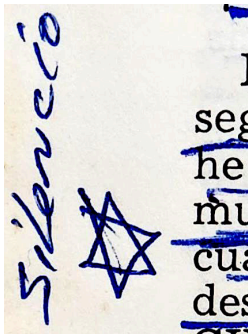 Silencio
seg
he
mu
cua
des